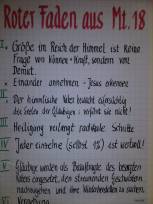 Roter Faden aus Mt. 18
I. Größe im Reich der Himmel ist keine
Frage von Können + Kraft, sondern
von Demut.
Einander annehmen - Jesus erkennen
II. Der himmlische Vater wacht eifersüchtig
über Seelen der Gläubigen: verführt sie nicht!
III Heiligung verlangt radikale Schnitte
IV Jeder einzelne (selbst 1%) ist wertvoll!
V Gläubige werden als Beauftragte des besorgten
Vaters eingesetzt, den streunenden Geschwistern
nachzugehen und ihre Wiederherstellung zu suchen.
VI Vergebung